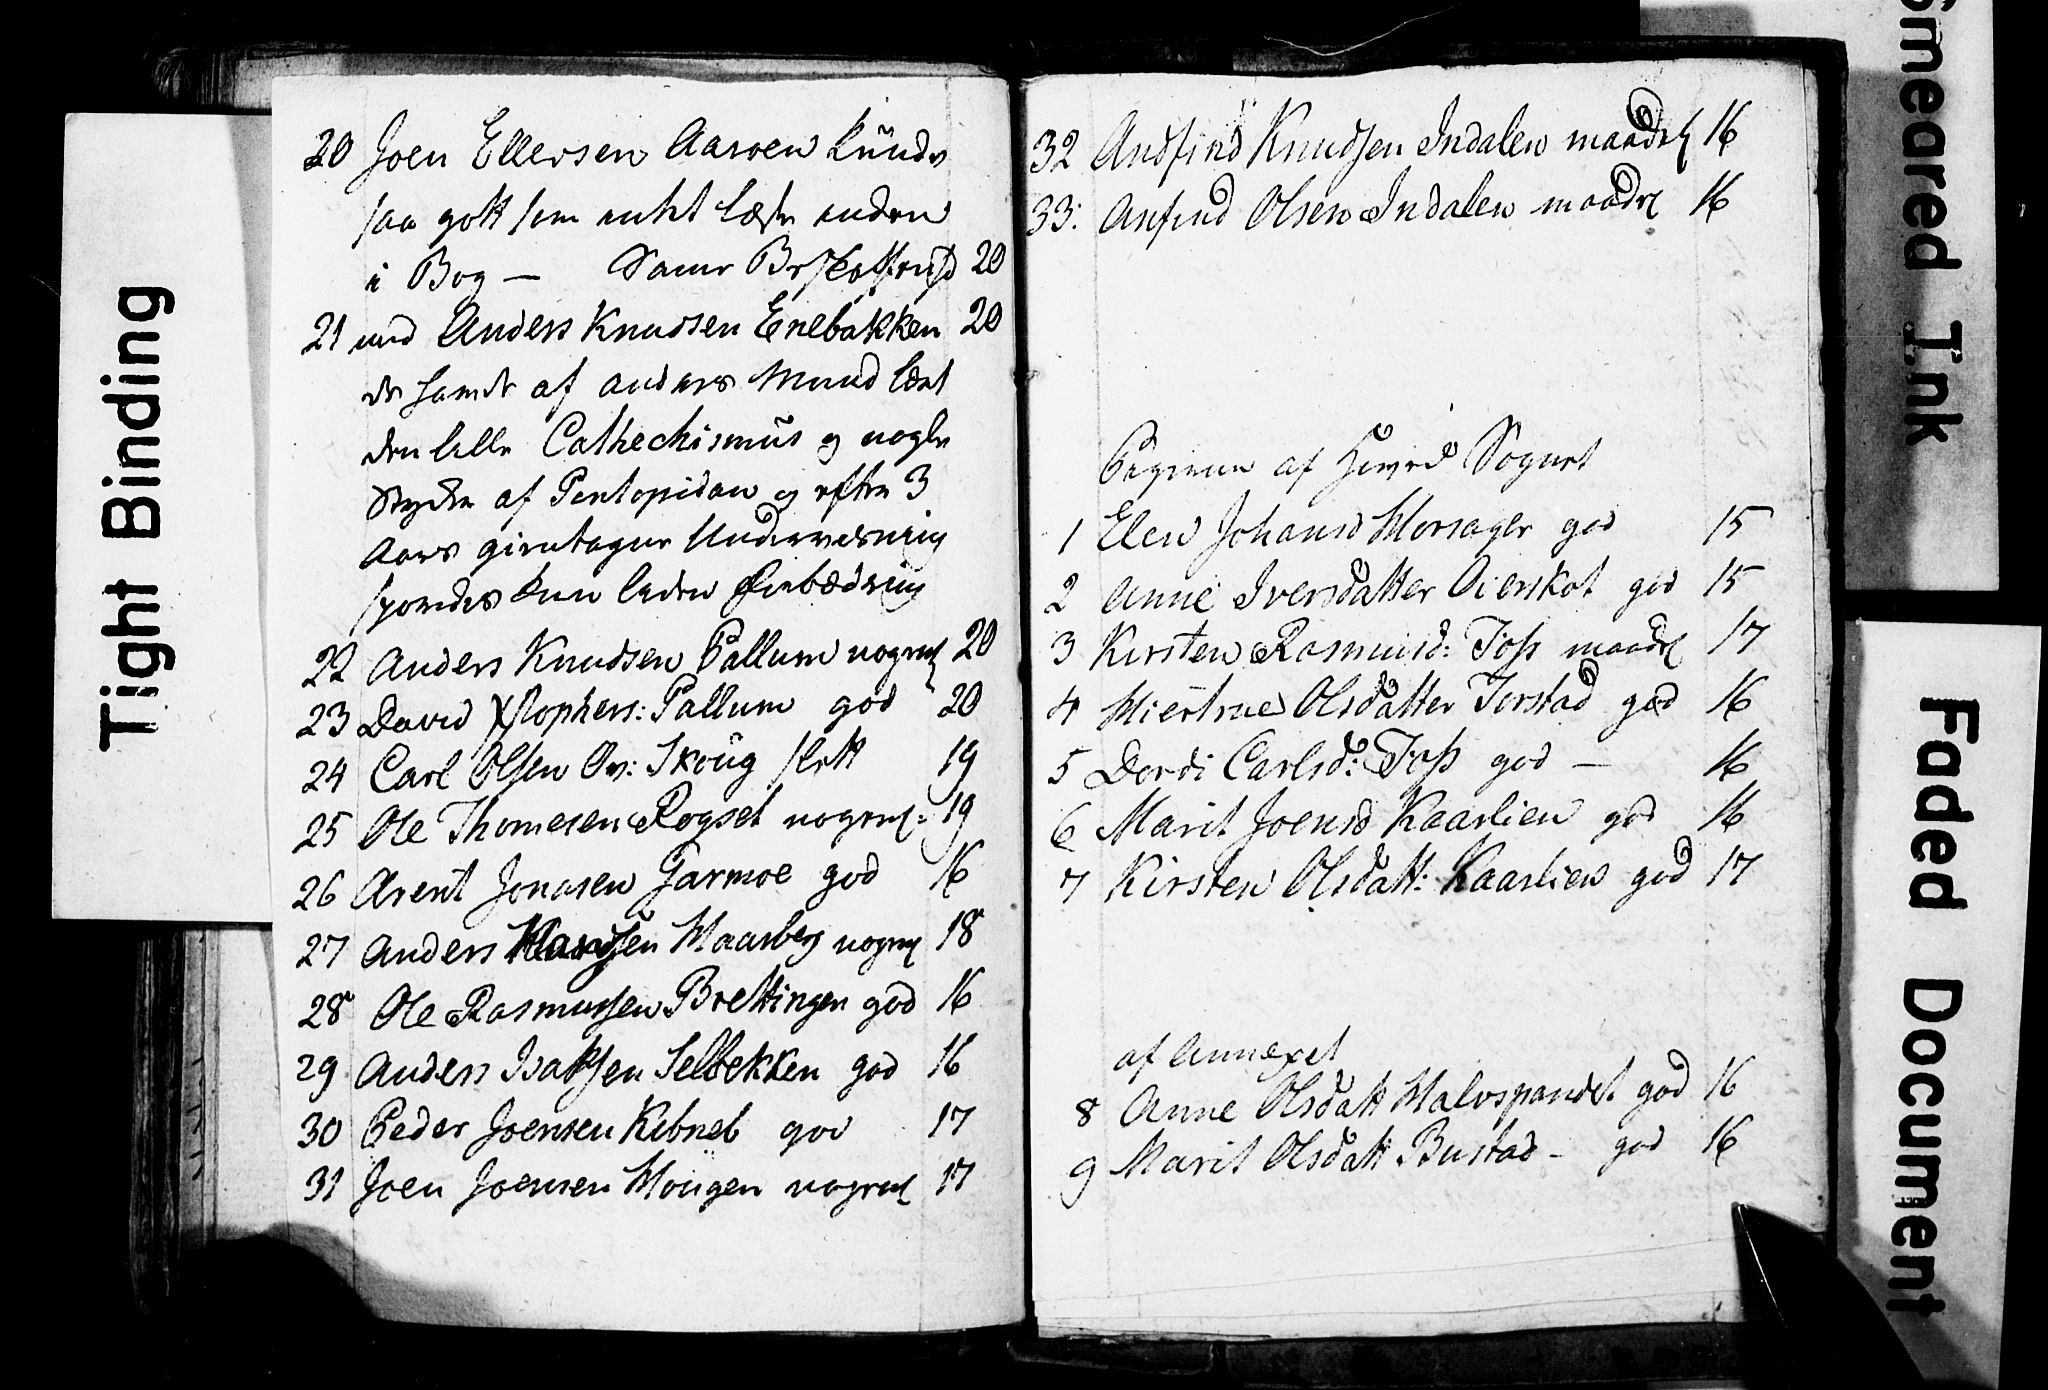 Tight Binding
20 Joen Ellersen Aaroen kunde
saa gott som intet læse inden
i Bog — Samme Beskaffenhd 20
21 med Anders Knudsen Enebakken 20
af anders Mund lært
den lille Cathechismus og nogle
Stycker af Pontopidan og efter 3
Aars gientagne Underviisning
spordes kun liden forbædring
22 Anders Knudsen Pallum nogenl 20
23 David Xstophers: Pallum god 20
24 Carl Olsen Ov: Skoug slett 19
25 Ole Thomesen Rogset nogenl: 19
26 Arent Jonasen Garmoe god 16
27 Anders Maarberg nogenl 18
28 Ole Rasmussen Brettingen god 16
29 Anders Isaksen Selbekken god 16
30 Peder Joensen Kibneb god 17
31 Joen Joensen Mougen nogenl 17
32 Andfind Knudsen Indalen maadel 16
33: Anfind Olsen Indalen maadel 16
Pigerne af Hoved Sognet
1 Elen Johansd Morsager god 15
2 Anne Iversdatter Oierskot god 15
3 Kirsten Rasmusd: Foss maadel 17
4 Olsdatter Jorstad god 16
5 Dordi Carlsd: Foss god — 16
6 Marit Joensd Kaarlien god 16
7 Kirsten Olsdatt: Kaarlien god 17
af Annexet
8 Anne Olsdatt Malvspandet god 16
9 Marit Olsdatt Bustad - god 16
Smeared Ink
Faded Document